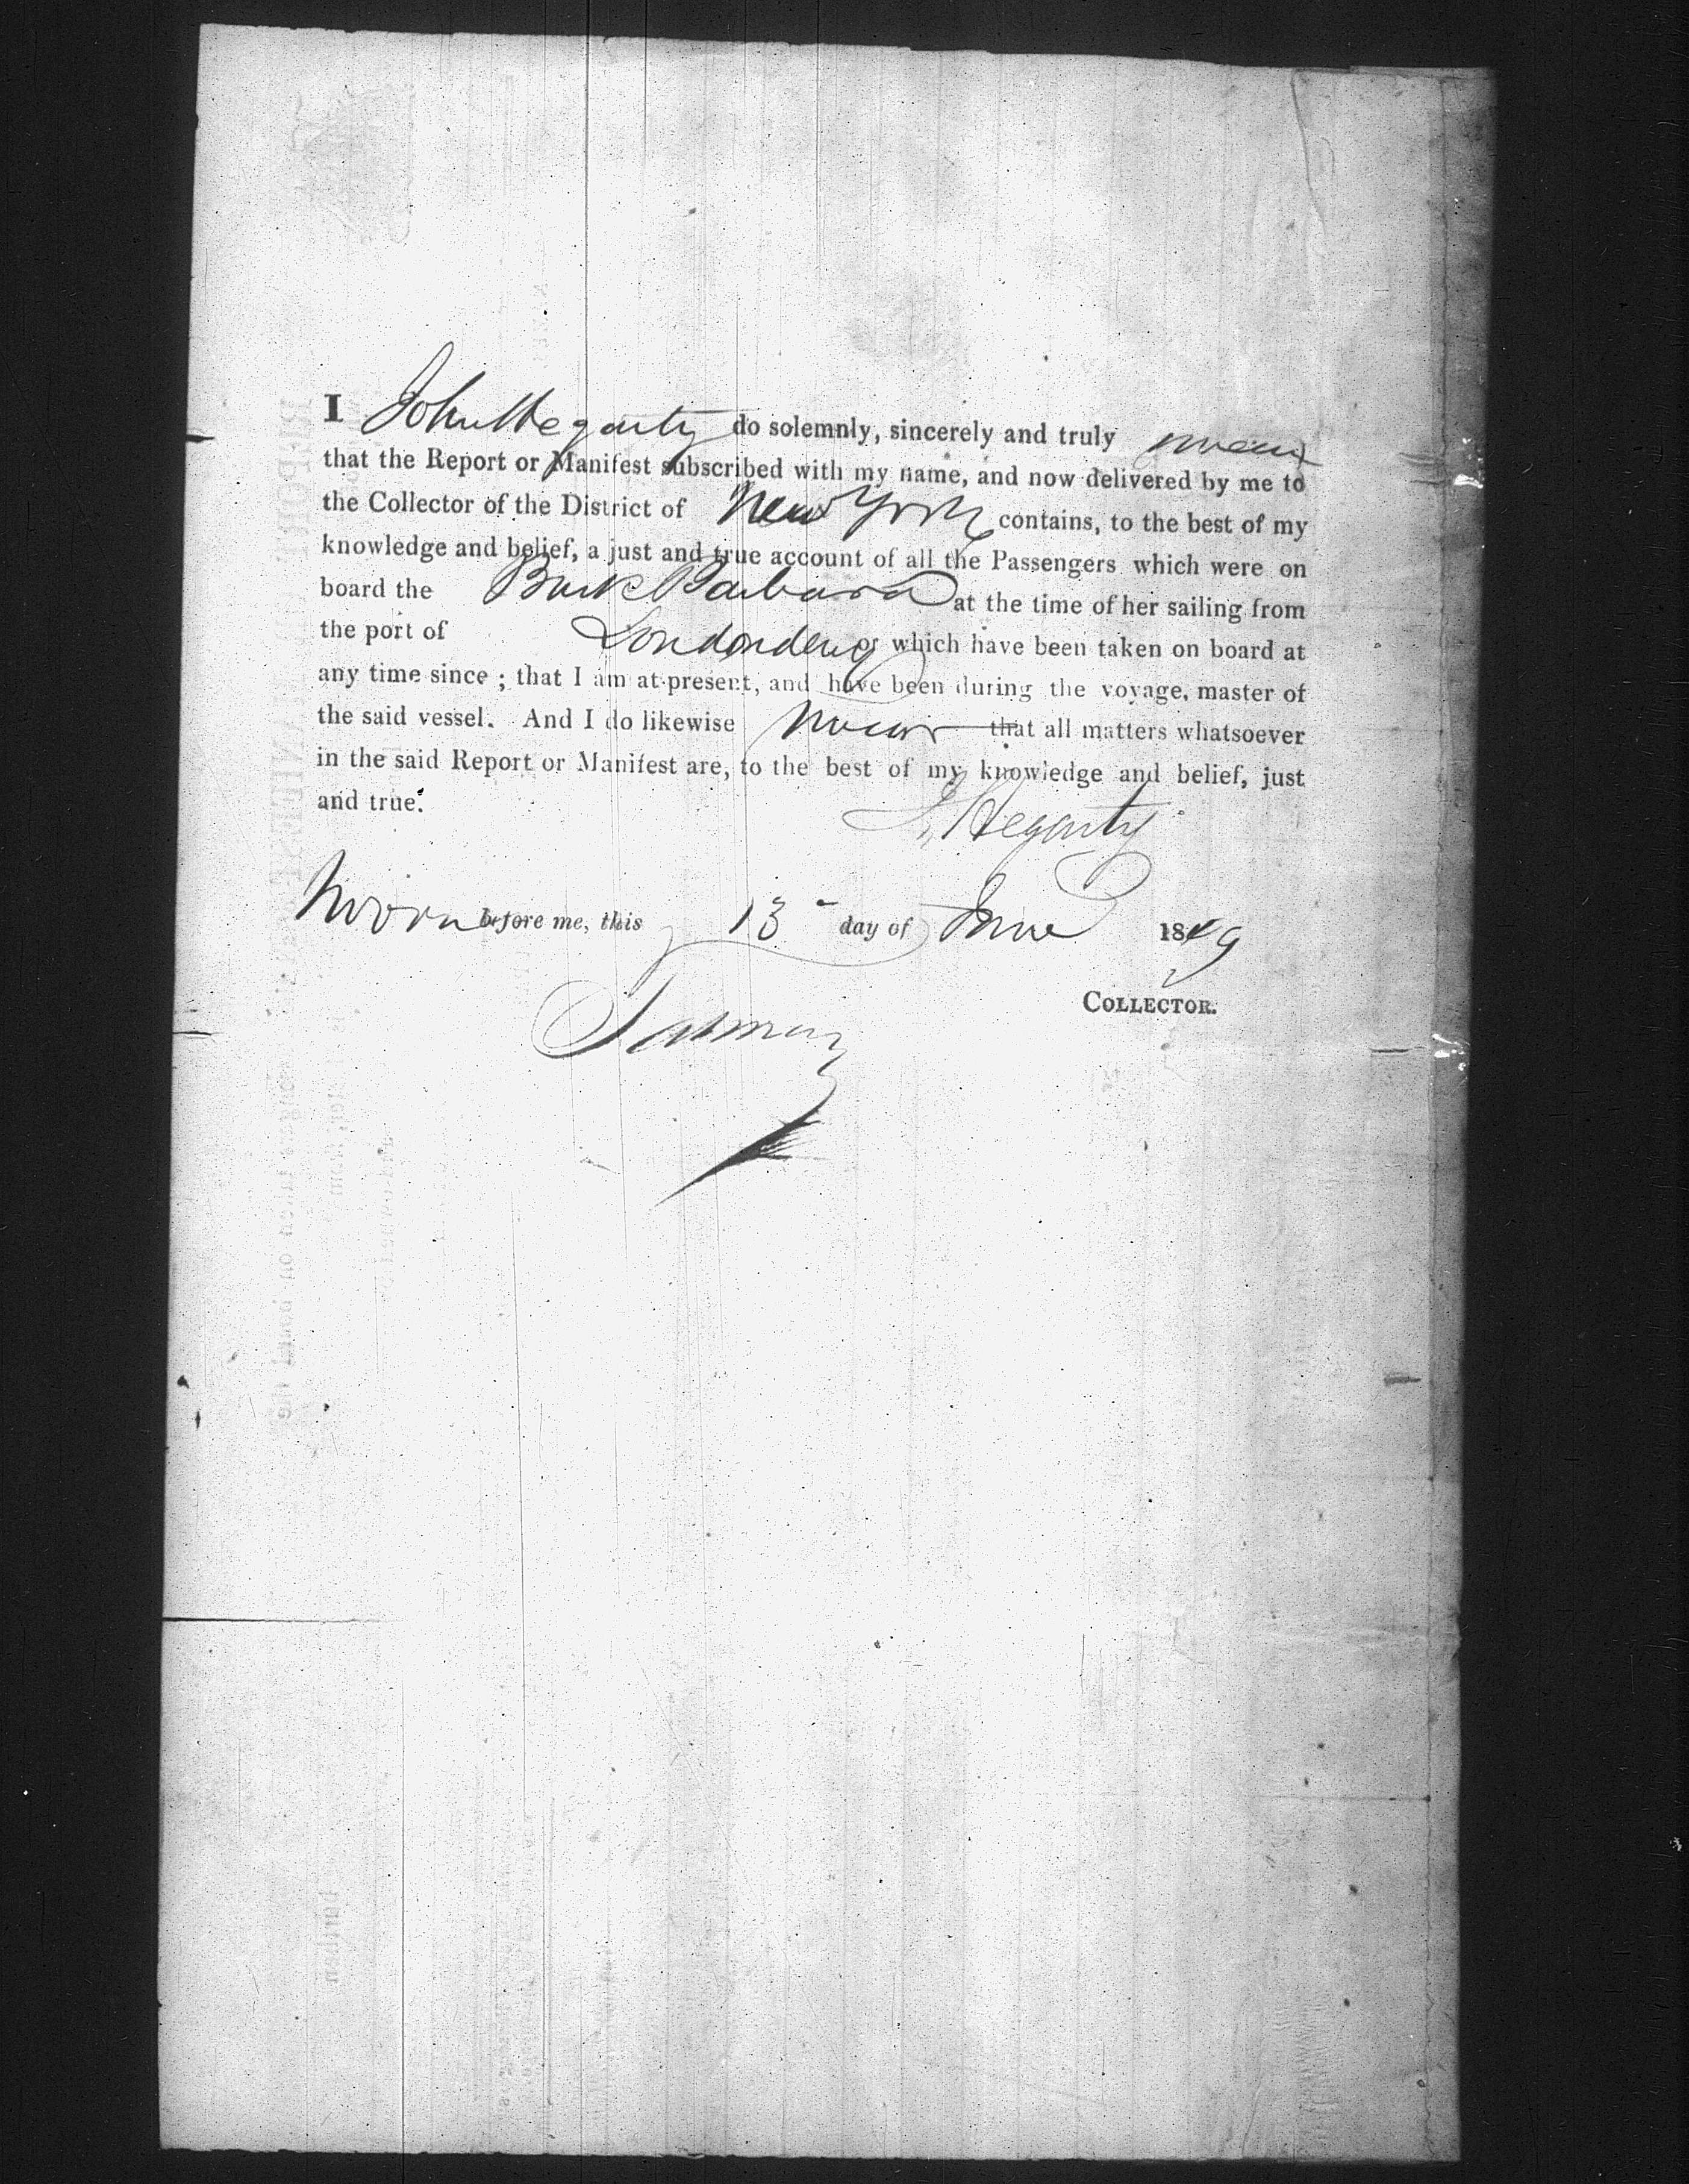 I John Hegarty do solemnly, sincerely and truly swear
that the Report or Manifest subscribed with my name, and now delivered by me to
the Collector of the District of New York contains, to the best of my
knowledge and belief, a just and true account of all the Passengers which were on
board the Bark Barbara at the time of her sailing from
the port of Londonderry or which have been taken on board at
any time since ; that I am at present, and have been during the voyage, master of
the said vessel. And I do likewise swear that all matters whatsoever
in the said Report or Manifest are, to the best of my knowledge and belief, just
and true.
J. Hegarty
Sworn before me, this 13 day of June 1849
COLLECTOR.